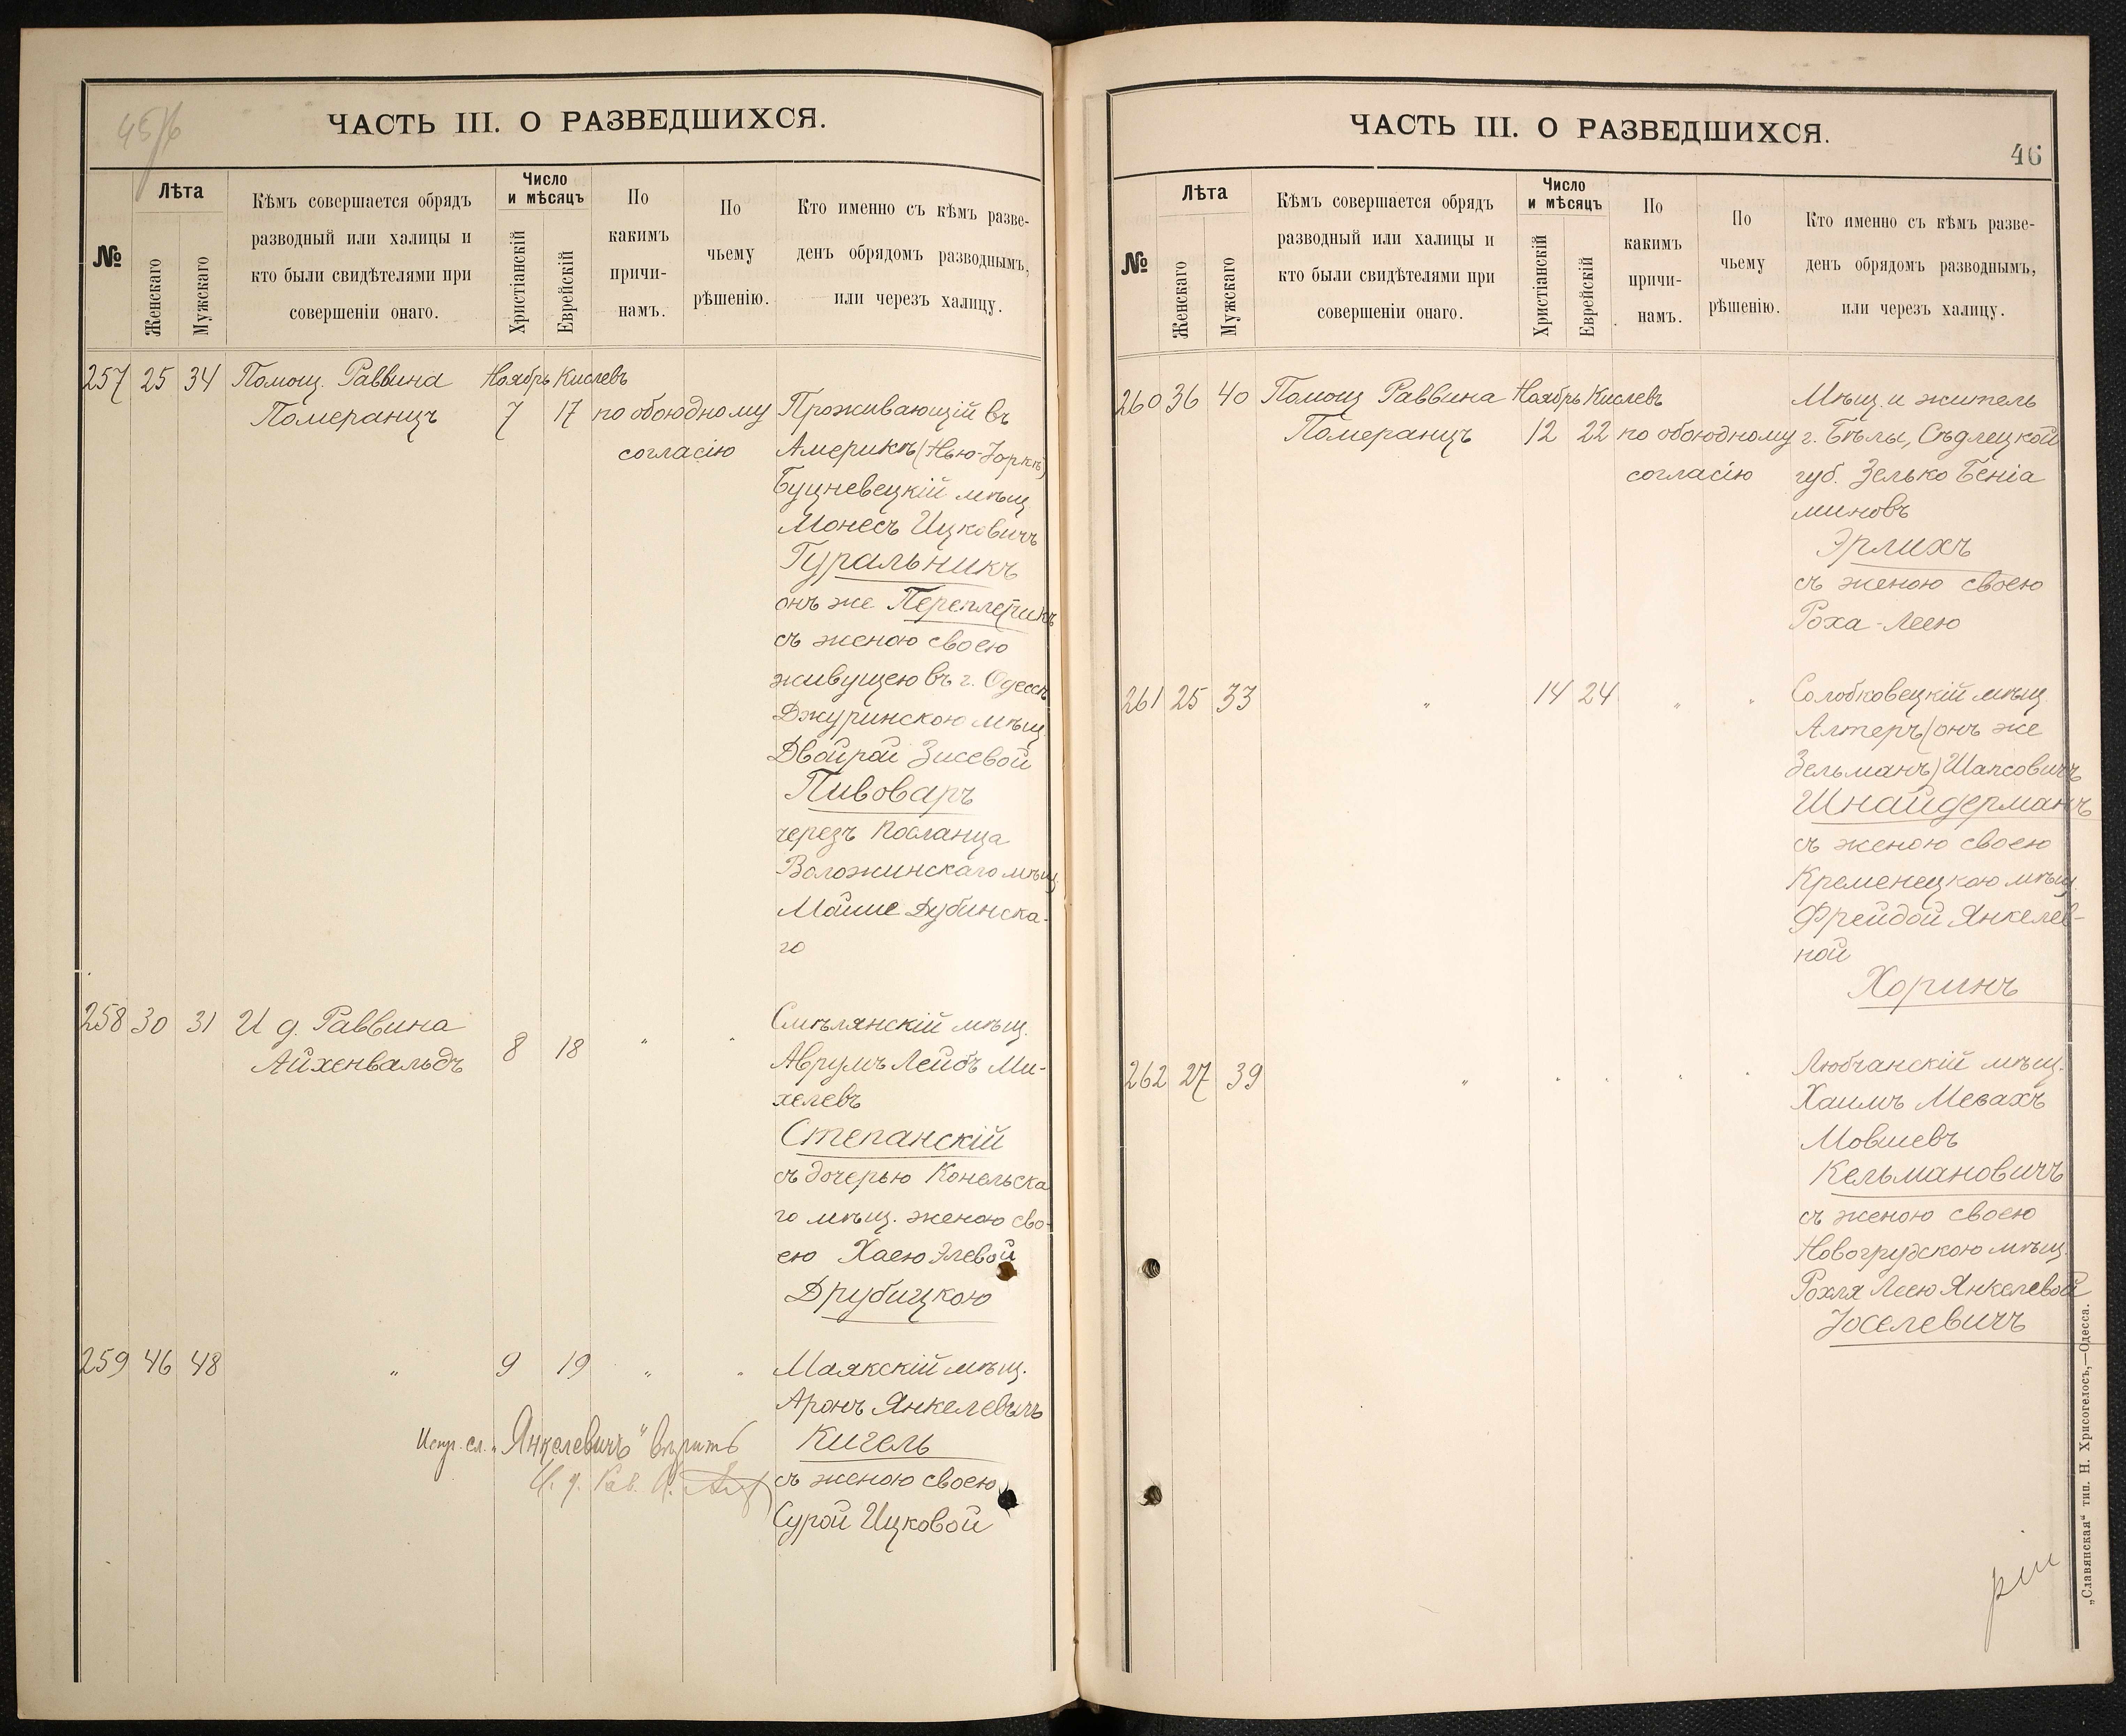 45/6
ЧАСТЬ III. О РАЗВЕДШИХСЯ.
№
Лѣта
Женскаго
Мужскаго
Кѣмъ совершается обрядъ
разводный или халицы и
кто были свидѣтелями при
совершеніи онаго.
Число
и мѣсяцъ
Христіанскій
Еврейскій
По
какимъ
причи-
намъ.
По
чьему
рѣшенію.
Кто именно съ кѣмъ разве-
денъ обрядомъ разводнымъ,
или черезъ халицу.
257 25 34 Помощ. Раввина Ноябрь Кислевъ
Померанцъ 7 17 по обоюдному Проживающій въ
согласію Америкѣ (Нью-Іоркѣ)
Буцневецкій мѣщ
Монесъ Ицковичъ
Гуральникъ
онъ же Переплетчикъ
съ женою своею
живущею въ г. Одессѣ
Джуринскою мѣщ
Двойрой Зисевой
Пивоваръ
черезъ посланца
Воложинскаго мѣщ
Мойше Дубинска-
го
258 30 31 И д. Раввина Смѣлянскій мѣщ.
Айхенвальдъ 8 18 " " Аврумъ Лейбъ Ми-
хелевъ
Степанскій
съ дочерью Конельска
го мѣщ. женою сво-
ею Хаею Элевой
Друбицкою
259 46 48 " 9 19 " " Маякскій мѣщ.
Аронъ Янкелевичъ
Испр. сл. „Янкелевичъ" вѣрить Кигель
И. д. Рав. съ женою своею
Сурой Ицковой
ЧАСТЬ III. О РАЗВЕДШИХСЯ.
46
№
Лѣта
Женскаго
Мужскаго
Кѣмъ совершается обрядъ
разводный или халицы и
кто были свидѣтелями при
совершеніи онаго.
Число
и мѣсяцъ
Христіанскій
Еврейскій
По
какимъ
причи-
намъ.
По
чьему
рѣшенію.
Кто именно съ кѣмъ разве-
денъ обрядомъ разводнымъ,
или черезъ халицу.
260 36 40 Помощ Раввина Ноябрь Кислевъ Мѣщ. и житель
Померанцъ 12 22 по обоюдному г. Бѣлы, Сѣдлецкой
согласію губ. Зелько Беніа
миновъ
Эрлихъ
съ женою своею
Роха-Леею
261 25 33 " 14 24 " " Солобковецкій мѣщ.
Алтеръ (онъ же
Зельманъ) Шапсовичъ
Шнайдерманъ
съ женою своею
Кременецкою мѣщ.
Фрейдой Янкелев-
ной
Хоринъ
262 27 39 " " " " " Любчанскій мѣщ.
Хаимъ Месахъ
Мовшевъ
Кельмановичъ
съ женою своею
Новогрудскою мѣщ.
Рохля Леею Янкелевой
Іоселевичъ
„Славянская" тип. Н. Хрисогелосъ,—Одесса.